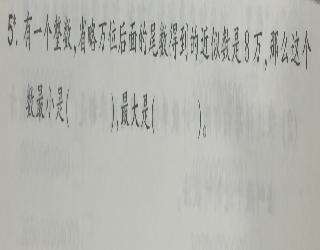 5*. 有一个整数,省略万位后面的尾数得到的近似数是8万,那么这个
数最小是(　　　),最大是(　　　)。